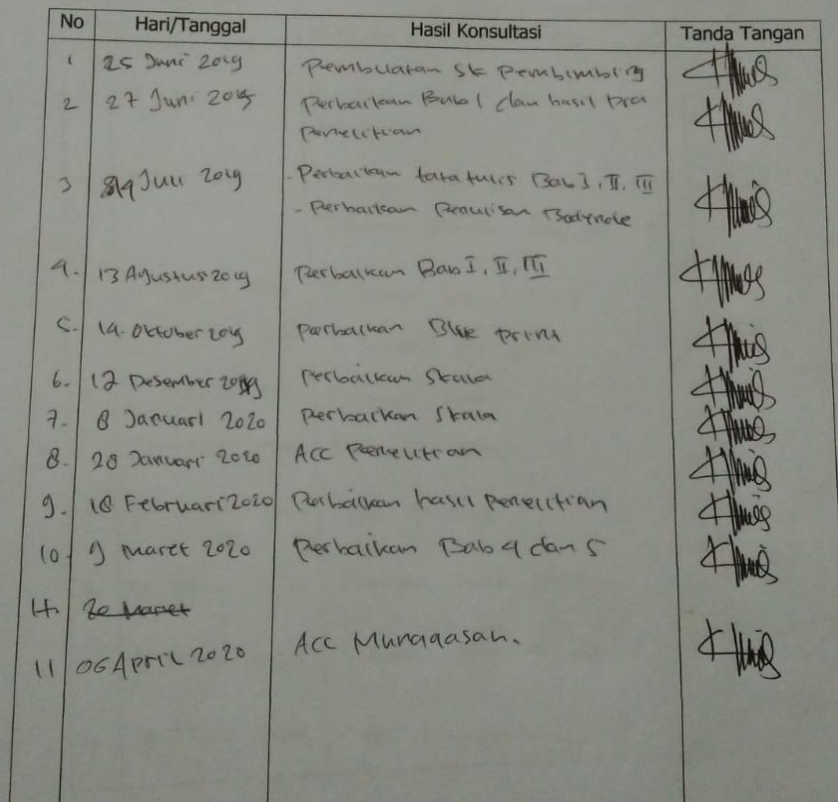 No Hari/Tanggal Hasil Konsultasi Tanda Tangan
1 25 Juni 2019 Pembuatan SK Pembimbing
2 27 Juni 2019 Perbaikan Bab 1 dan hasil pra
Penelitian
3 Juli 2019 - Perbaikan tata tulis Bab I, II, III
- Perbaikan Penulisan Bodynote
4. 13 Agustus 2019 Perbaikan Bab I, II, III
5. 14 Oktober 2019 Perbaikan Blue print
6. 12 Desember 2019 Perbaikan Skala
7. 8 Januari 2020 Perbaikan Skala
8. 28 Januari 2020 ACC Penelitian
9. 18 Februari 2020 Perbaikan hasil Penelitian
10 9 Maret 2020 Perbaikan Bab 4 dan 5
11. 20 Maret
11 06 April 2020 Acc Munaqasah.